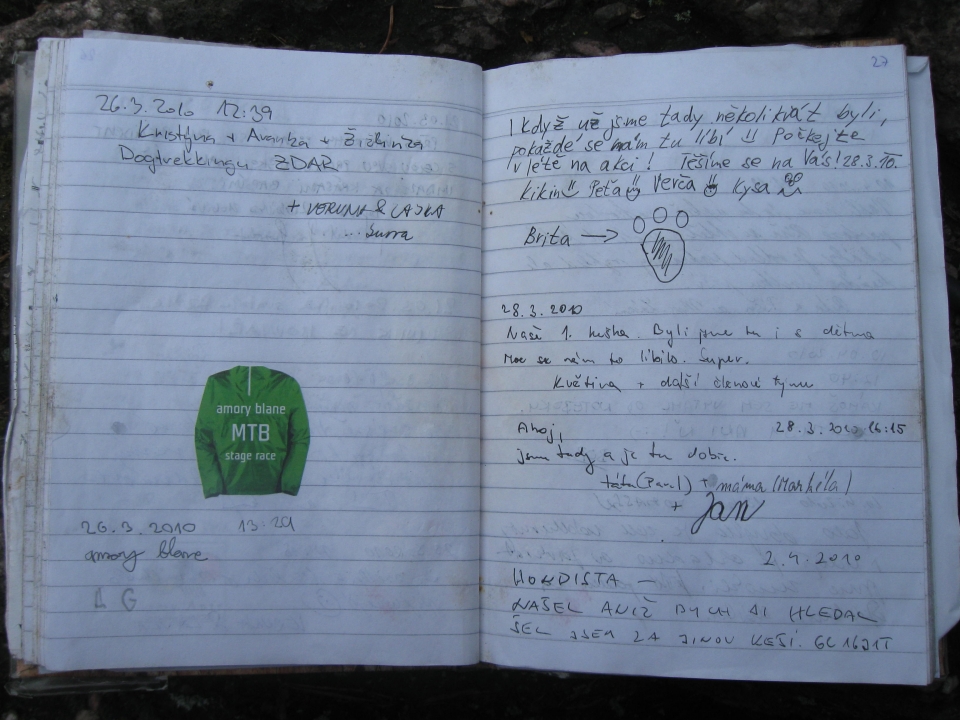 26.3.2010 12:39
Kristýna + +
Dogtrekkingu ZDAR
+ VERUNA & LAJKA
...
amory blane
MTB
stage race
26.3.2010 13:29
amory blane
27
I když už jsme tady několikrát byli,
pokaždé se nám tu líbí !! Počkejte
v létě na akci! Těšíme se na Vás! 28.3.10.
Kikin Peťa Verča Kysa
Brita →
28.3.2010
Naše 1. keška. Byli jsme tu i s dětma
Moc se nám to líbilo. Super.
Květina + další členové týmu
Ahoj, 28.3.2010 16:15
jsme tady a je tu dobře.
táta (Pavel) + máma (Markéta)
+ Jan
2.4.2010
HONDISTA —
NAŠEL ANIŽ BYCH JI HLEDAL
ŠEL JSEM ZA JINOU KEŠÍ.